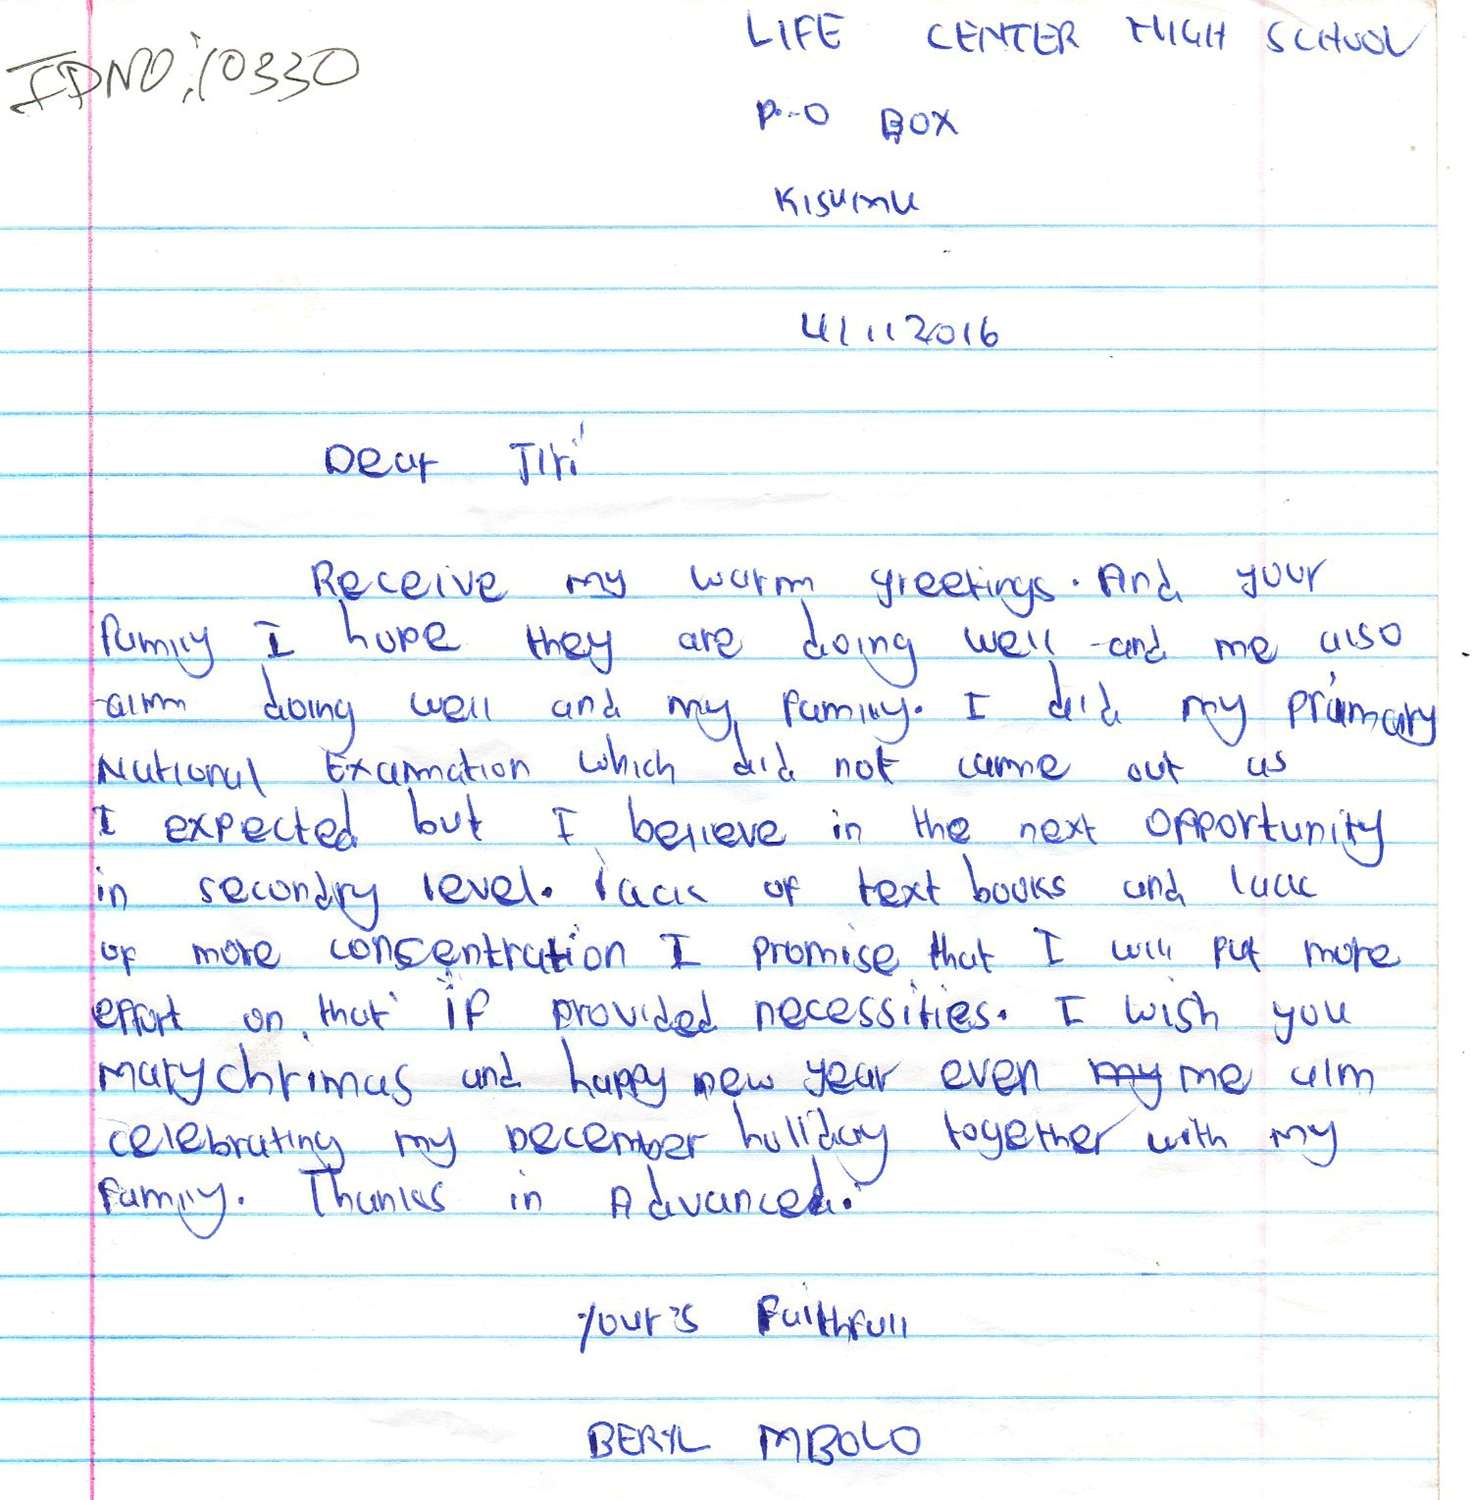 IDNO:10330
LIFE CENTER HIGH SCHOOL
P.O BOX
KISUMU
4/11 2016
Dear Jiri
Receive my warm greetings. And your
family I hope they are doing well and me also
aim doing well and my family. I did my primary
National Examnation which did not came out as
I expected but I believe in the next opportunity
in secondry level. lack of text books and lack
of more consentration I promise that I will put more
effort on that if provided necessities. I wish you
mary chrimas and happy new year even my me alm
celebrating my December holliday together with my
family. Thanks in Advanced.
your's Faithfull
BERYL MBOLO